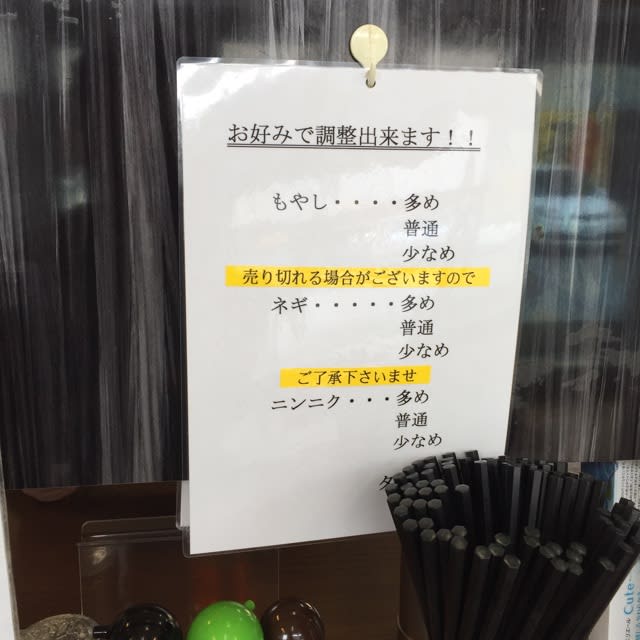 お好みで調整出来ます！！
もやし・・・・多め
普通
少なめ
売り切れる場合がございますので
ネギ・・・・・多め
普通
少なめ
ご了承下さいませ
ニンニク・・・多め
普通
少なめ
Cute